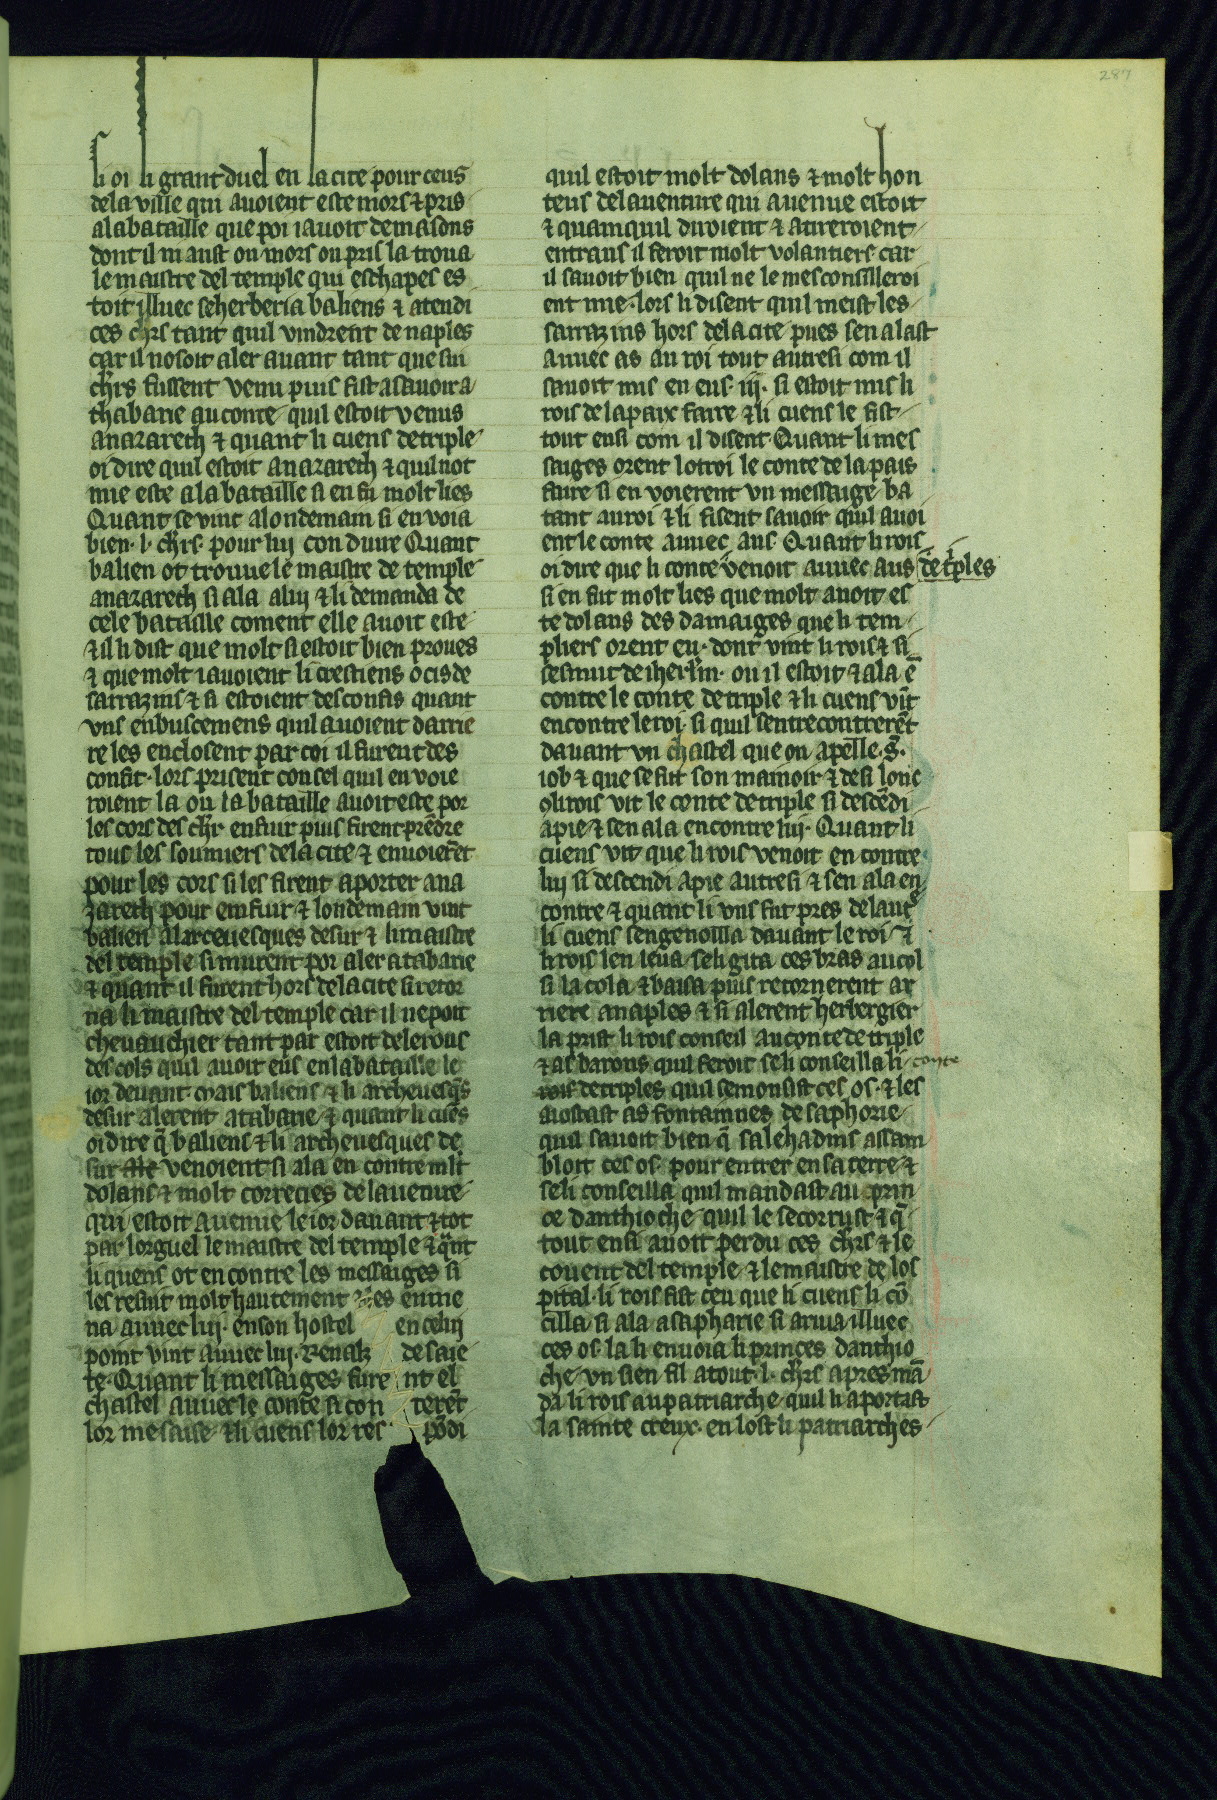 287
li oi li grant duel en la cite pour ceus
de la ville qui auoient este mors ⁊ pris
a la bataille que poi i auoit de maisons
dont il ni aust ou mors ou pris la troua
le maistre del temple qui eschapes es
toit illuec se herberia baliens ⁊ atendi
ces chrs tant quil vindrent de naples
car il nosoit aler auant tant que sui
chrs fussent venu puis fist asauoir a
thabarie au conte quil estoit venus
a nazareth ⁊ quant li cuens de triple
oi dire quil estoit a nazareth ⁊ quil not
mie este a la bataille si en fu molt lies
Quant se vint a londemain si en voia
bien .l. chrs pour luj conduire Quant
balien ot trouue le maistre de temple
a nazareth si ala a luj ⁊ li demanda de
cele bataille coment elle auoit este
⁊ il li dist que molt si estoit bien proues
⁊ que molt i auoient li crestiens ocis de
sarrazins ⁊ si estoient desconfis quant
vns enbuscemens quil auoient darrie
re les enclosent par coi il furent des
confit. lors prisent consel quil en voie
roient la ou la bataille auoit este por
les cors des chr enfuir puis firent prēdre
tous les soumiers de la cite ⁊ enuoierēt
pour les cors si les firent aporter a na
zareth pour emfuir ⁊ londemain vint
balien a larceuesques de sur ⁊ li maistre
del temple si murent por aler a tabarie
⁊ quant il furent hors de la cite si retor
na li maistre del temple car il ne poit
cheuauchier tant par estoit delerous
des cols quil auoit eus en la bataille le
ior deuant. mais baliens ⁊ li archeuesqs
de sur alerent a tabarie ⁊ quant li cuēs
oi dire q̄ baliens ⁊ li archeuesques de
sur venoient si ala en contre mlt
dolans ⁊ molt correcies de lauenture
qui estoit auenue le ior dauant ⁊ tot
par lorguel le maistre del temple ⁊ qnt
li quens ot encontre les messaiges si
les resut molt hautement ⁊ les enme
na auuec luj. en son hostel en celuj
point vint auuec luj. Renalz de saie
te. Quant li messaiges furent el
chastel auuec le conte si conterēt
lor mesaise ⁊ li cuens lor respōdi
quil estoit molt dolans ⁊ molt hon
teus de lauenture qui auenue estoit
⁊ quamquil diroient ⁊ atireroient
entraus il feroit molt volantiers car
il sauoit bien quil ne le mesconsilleroi
ent mie. lors li disent quil meist les
sarrazins hors de la cite pues sen alast
auuec as au roi tout autresi com il
sauoit mis en eus. iij. si estoit mis li
rois de la paix faire ⁊ li cuens le fist
tout ensi com il disent Quant li mes
saiges orent lotroi le conte de la pais
faire si en voierent vn messaige ba
tant au roi ⁊ li fisent sauoir quil auoi
ent le conte auuec aus Quant li rois
oi dire que li conte venoit auuec aus de triples
si en fut molt lies que molt auoit es
te dolans des damaiges que li tem
pliers orent eu. dont vint li rois ⁊ si
sesmut de iherlm. ou il estoit ⁊ ala ē
contre le conte de triple ⁊ li cuens vīt
encontre le roi si quil sentrecontrerēt
dauant vn chastel que on apelle .s.
iob ⁊ que se fut son manoir ⁊ de si long
oli rois vit le conte de triple si descēdi
apie ⁊ sen ala encontre luj. Quant li
cuens vit que li rois venoit en contre
luj si descendi apie autresi ⁊ sen ala en
contre ⁊ quant li vns fut pres de laut
li cuens sengenoilla dauant le roi ⁊
li rois len leua seli gita ces bras au col
si lacola ⁊ baisa puis retornerent ar
riere a naples ⁊ si alerent herbergier
la prist li rois conseil au conte de triple
⁊ as barons quil feroit seli conseilla li conte
de triples quil semonsist ces os. ⁊ les
aiostast as fontainnes de saphorie
quil sauoit bien q̄ salehadins assam
bloit ces os. pour entrer en sa terre ⁊
seli conseilla quil mandast au prin
ce danthioche quil le secorrust ⁊ q̄
tout ensi auoit perdu ces chrs ⁊ le
couent del temple ⁊ le maistre de los
pital. li rois fist ceu que li cuens li cō
cilla si ala a sapharie si ariua illuec
ces os. la li enuoia li princes danthio
che vn sien fil atout .l. chrs apres mā
da li rois au patriarche quil li aportast
la sainte creux. en lost li patriarches